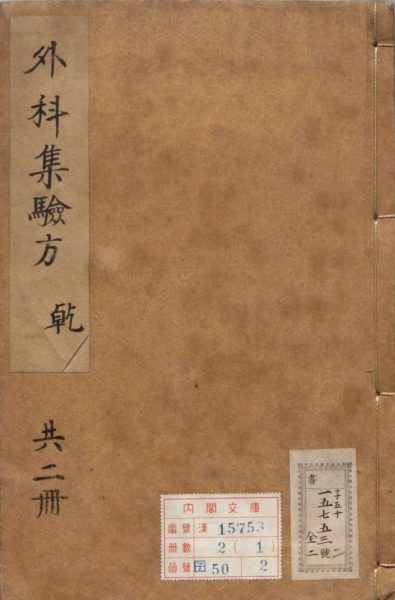 外科集驗方 乾
共二冊
內閣文庫
番號 漢 15753
冊數 2 (1)
函號 子 50 2
書
子五十
一五七五三號
全二